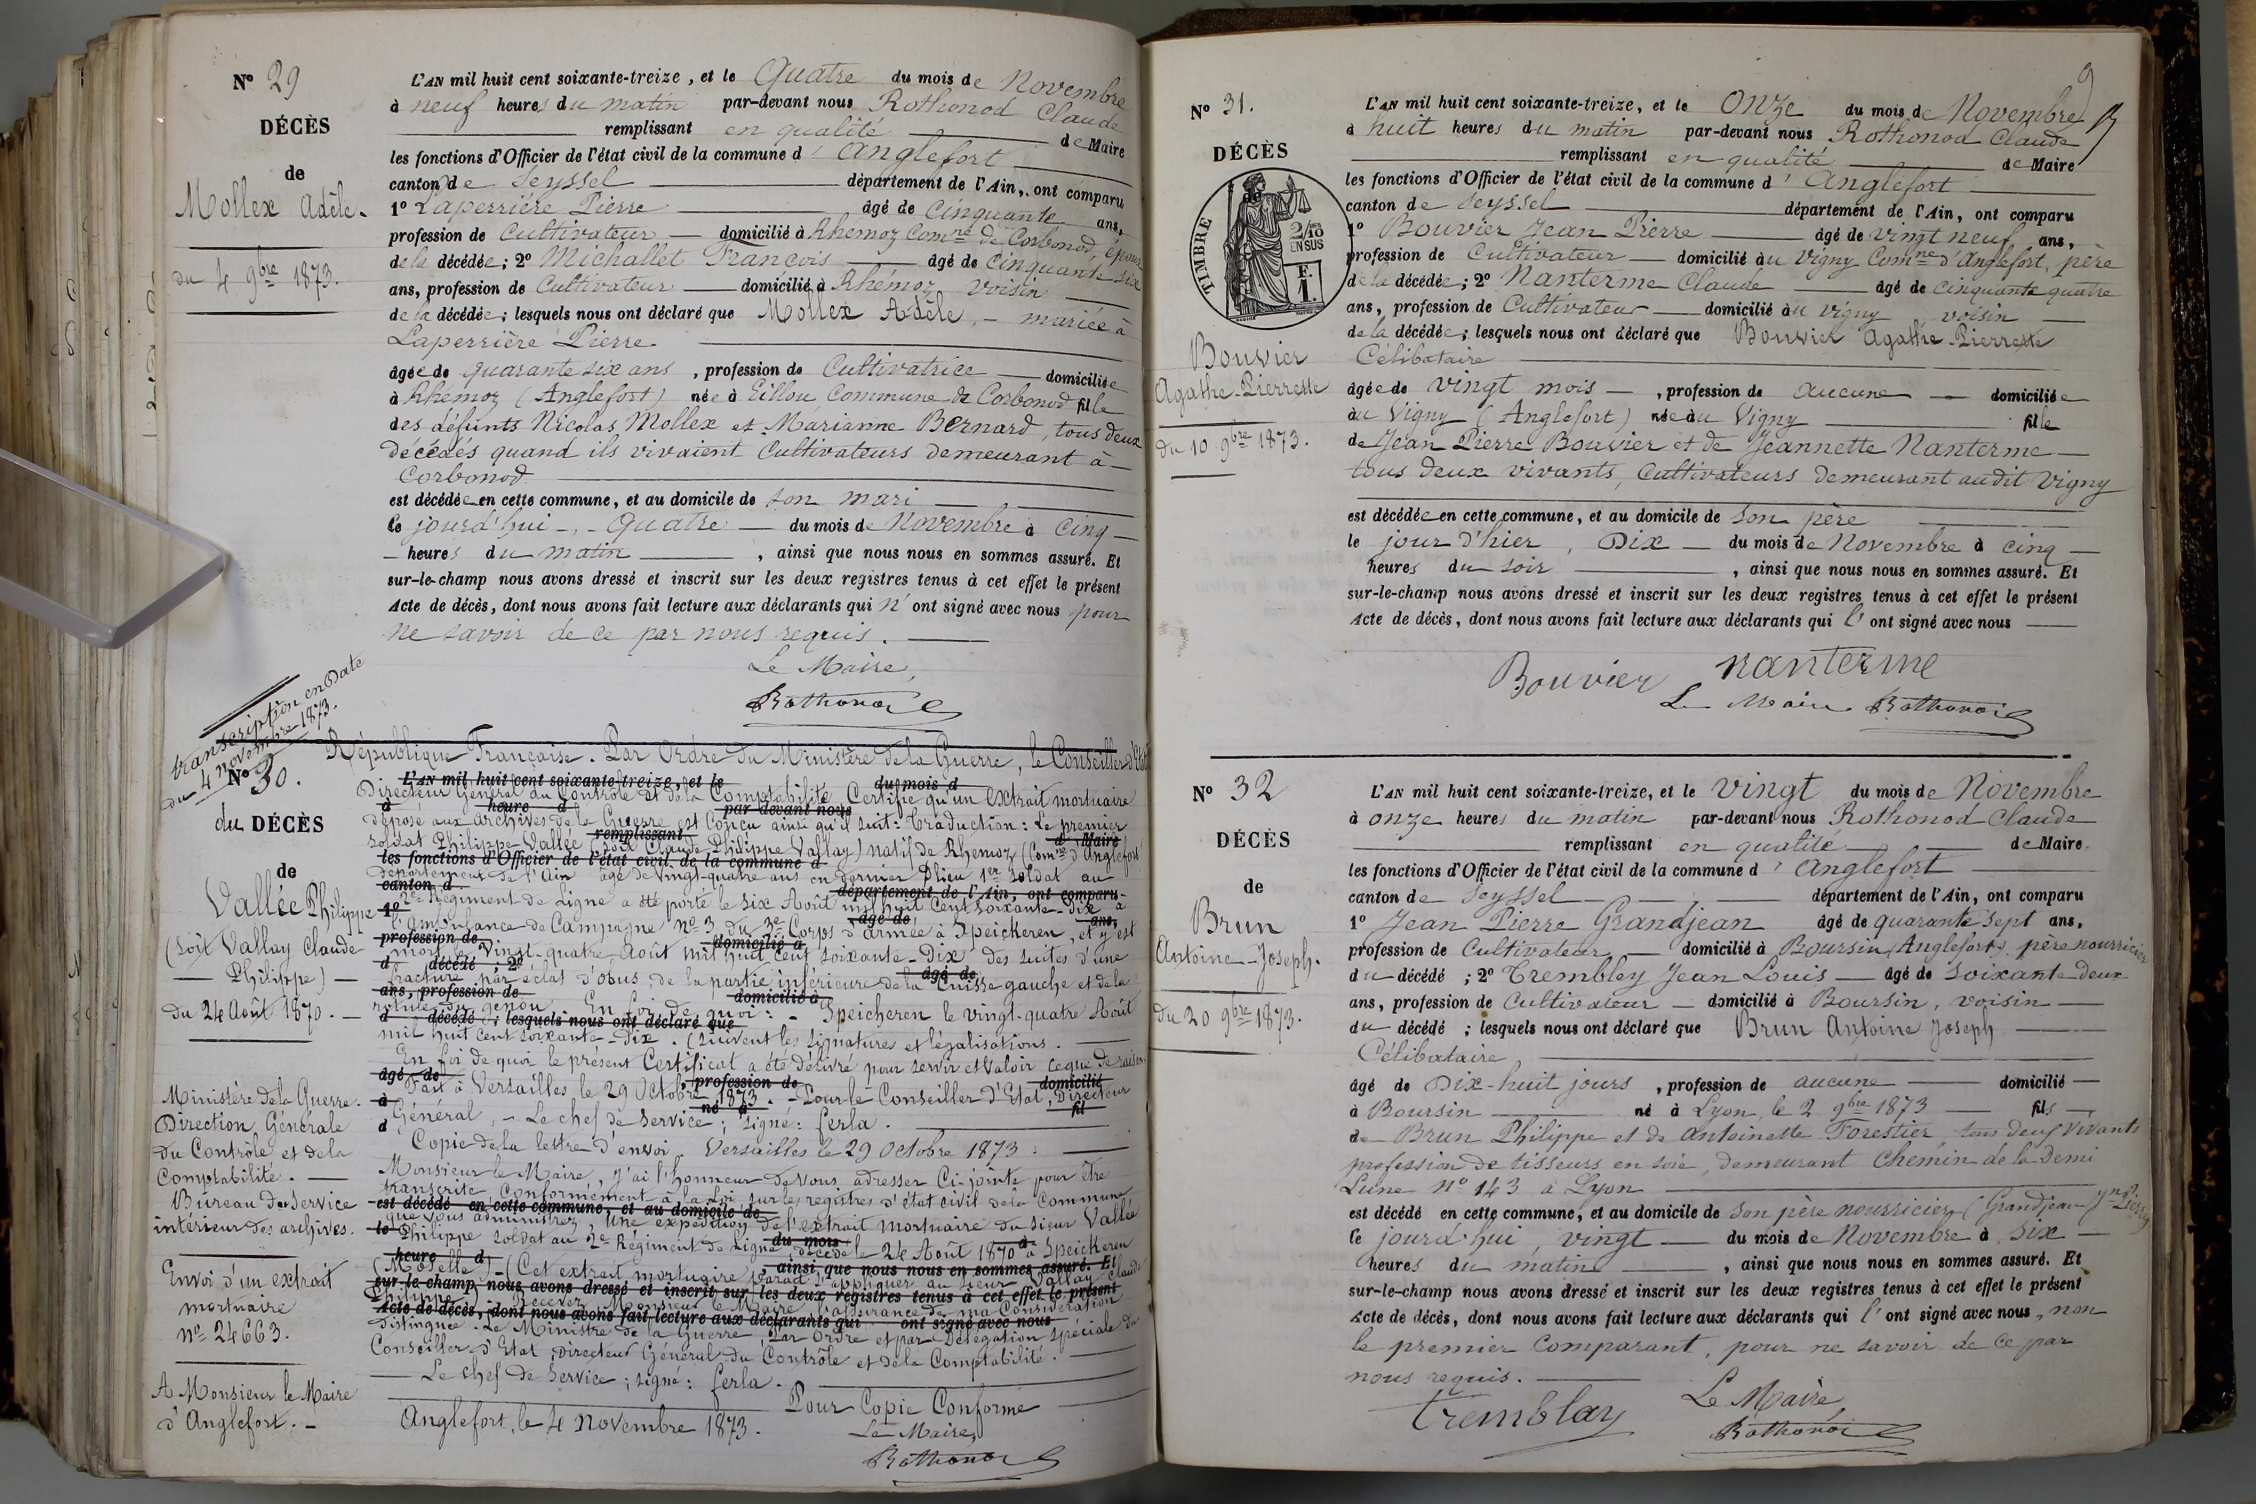 N° 29
DÉCÈS
de
Mollex Adèle.
du 4 9bre 1873.
L'AN mil huit cent soixante-treize, et le Quatre du mois de Novembre
à neuf heures du matin par-devant nous Rothonod Claude
remplissant en qualité de Maire
les fonctions d'Officier de l'état civil de la commune d'Anglefort
canton de Seyssel département de l'Ain, ont comparu
1° Laperrière Pierre âgé de cinquante ans,
profession de Cultivateur domicilié à Rhémoz Comne de Corbonod, époux
de la décédée; 2° Michallet François âgé de cinquante six
ans, profession de Cultivateur domicilié à Rhémoz voisin
de la décédée; lesquels nous ont déclaré que Mollex Adèle, mariée à
Laperrière Pierre
âgée de quarante six ans, profession de Cultivatrice domiciliée
à Rhémoz (Anglefort) née à Eillou Commune de Corbonod fille
des défunts Nicolas Mollex et Marianne Bernard, tous deux
décédés quand ils vivaient Cultivateurs demeurant à
Corbonod
est décédée en cette commune, et au domicile de son mari
le jourd'hui quatre du mois de Novembre à cinq
heures du matin, ainsi que nous nous en sommes assuré. Et
sur-le-champ nous avons dressé et inscrit sur les deux registres tenus à cet effet le présent
Acte de décès, dont nous avons fait lecture aux déclarants qui n'ont signé avec nous pour
ne savoir de ce par nous requis.
Le Maire,
Rothonod
transcription en Date
du 4 novembre 1873.
N° 30.
du DÉCÈS
de
Vallée Philippe
(soit Vallay Claude
Philippe)
du 24 Août 1870.
Ministère de la Guerre.
Direction Générale
du Contrôle et de la
Comptabilité.
Bureau du Service
intérieur des archives.
Envoi d'un extrait
mortuaire
n° 24663.
A Monsieur le Maire
d'Anglefort.
République Française. Par Ordre du Ministère de la Guerre, le Conseiller d'Etat
Directeur Général du Contrôle et de la Comptabilité, Certifie qu'un extrait mortuaire
déposé aux archives de la Guerre est Conçu ainsi qu'il suit: Traduction: Le premier
soldat Philippe Vallée (soit Claude Philippe Vallay) natif de Rhemoz (Comne d'Anglefort
département de l'Ain âgé de vingt-quatre ans en dernier lieu 1er soldat au
2e Régiment de Ligne a été porté le six Août mil huit Cent soixante-dix à
l'ambulance de Campagne N° 3 du 3e Corps d'armée à Speickeren, et y est
mort le vingt-quatre Août mil huit Cent soixante-Dix des suites d'une
fracture par éclat d'obus, de la partie inférieure de la Cuisse gauche et de la
rotule du genou. En foi de quoi: Speicheren le vingt-quatre Août
mil huit Cent soixante-Dix. (suivent les signatures et légalisations.
En foi de quoi le présent Certificat a été délivré pour servir et valoir ce que de raison.
Fait à Versailles le 29 Octobre 1873. Pour le Conseiller d'Etat, Directeur
Général, Le chef de Service; Signé: ferla.
Copie de la lettre d'envoi. Versailles le 29 Octobre 1873:
Monsieur le Maire, j'ai l'honneur de vous adresser Ci-jointe pour être
transcrite, Conformément à la loi sur les registres d'état civil de la Commune
que vous administrez, une expédition de l'extrait mortuaire du sieur Vallée
Philippe soldat au 2e Régiment de Ligne décédé le 24 Août 1870 à Speickeren
(Moselle) (Cet extrait mortuaire paraît s'appliquer au sieur Vallay Claude
Philippe) Recevez Monsieur le Maire l'assurance de ma Considération
distinguée. Le Ministre de la Guerre, Par Ordre et par Délégation spéciale du
Conseiller d'Etat, Directeur Général du Contrôle et de la Comptabilité.
Le chef de Service; signé: ferla.
Pour Copie Conforme
Anglefort, le 4 novembre 1873.
Le Maire,
Rothonod
9
N° 31.
DÉCÈS
TIMBRE
2/10
EN SUS
F.
1.
Bouvier
Agathe-Pierrette
du 10 9bre 1873.
L'AN mil huit cent soixante-treize, et le onze du mois de Novembre
à huit heures du matin par-devant nous Rothonod Claude
remplissant en qualité de Maire
les fonctions d'Officier de l'état civil de la commune d'Anglefort
canton de Seyssel département de l'Ain, ont comparu
1° Bouvier Jean Pierre âgé de vingt neuf ans,
profession de Cultivateur domicilié au Vigny Comne d'Anglefort, père
de la décédée; 2° Nanterme Claude âgé de cinquante quatre
ans, profession de Cultivateur domicilié au Vigny voisin
de la décédée; lesquels nous ont déclaré que Bouvier Agathe-Pierrette
Célibataire
âgée de vingt mois, profession de aucune domiciliée
au Vigny (Anglefort) née au Vigny fille
de Jean Pierre Bouvier et de Jeannette Nanterme
tous deux vivants, Cultivateurs demeurant audit Vigny
est décédée en cette commune, et au domicile de son père
le jour d'hier, Dix du mois de Novembre à cinq
heures du soir, ainsi que nous nous en sommes assuré. Et
sur-le-champ nous avons dressé et inscrit sur les deux registres tenus à cet effet le présent
Acte de décès, dont nous avons fait lecture aux déclarants qui l'ont signé avec nous
Bouvier nanterme
Le Maire Rothonod
N° 32
DÉCÈS
de
Brun
Antoine-Joseph.
du 20 9bre 1873.
L'AN mil huit cent soixante-treize, et le vingt du mois de Novembre
à onze heures du matin par-devant nous Rothonod Claude
remplissant en qualité de Maire.
les fonctions d'Officier de l'état civil de la commune d'Anglefort
canton de Seyssel département de l'Ain, ont comparu
1° Jean Pierre Grandjean âgé de quarante sept ans,
profession de Cultivateur domicilié à Boursin (Anglefort), père nourricier
du décédé; 2° Trembley Jean Louis âgé de soixante deux
ans, profession de Cultivateur domicilié à Boursin, voisin
du décédé; lesquels nous ont déclaré que Brun Antoine Joseph
Célibataire
âgé de Dix-huit jours, profession de aucune domicilié
à Boursin né à Lyon, le 2 9bre 1873 fils
de Brun Philippe et de Antoinette Forestier, tous deux vivants
profession de tisseurs en soie, demeurant Chemin de la Demi
Lune N° 143 à Lyon
est décédé en cette commune, et au domicile de son père nourricier (Grandjean Jn Pierre)
le jourd'hui vingt du mois de Novembre à six
heures du matin, ainsi que nous nous en sommes assuré. Et
sur-le-champ nous avons dressé et inscrit sur les deux registres tenus à cet effet le présent
Acte de décès, dont nous avons fait lecture aux déclarants qui l'ont signé avec nous, non
le premier Comparant, pour ne savoir de ce par
nous requis.
Le Maire,
tremblay Rothonod